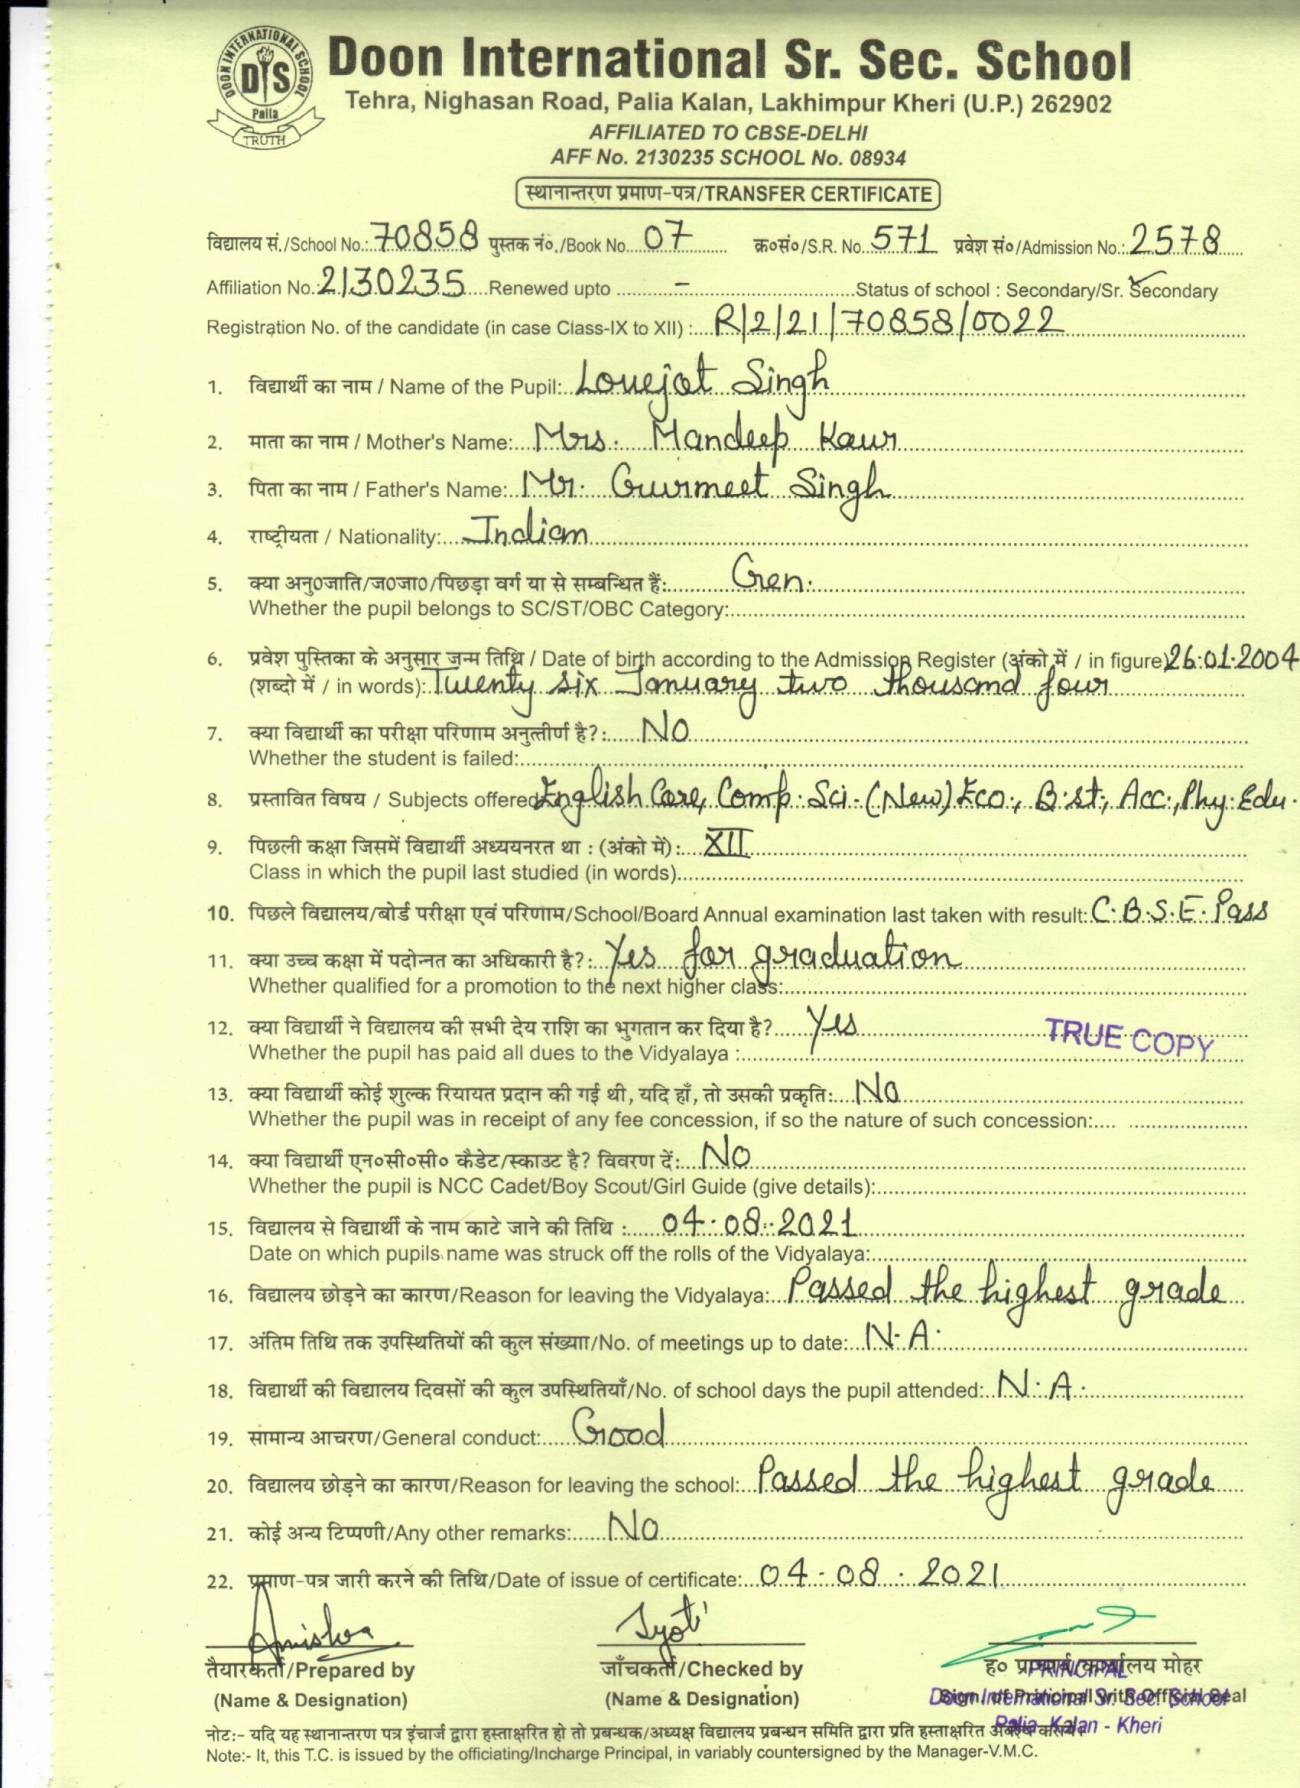 DOON INTERNATIONAL SCHOOL
DIS
Palia
TRUTH
Doon International Sr. Sec. School
Tehra, Nighasan Road, Palia Kalan, Lakhimpur Kheri (U.P.) 262902
AFFILIATED TO CBSE-DELHI
AFF No. 2130235 SCHOOL No. 08934
स्थानान्तरण प्रमाण-पत्र/TRANSFER CERTIFICATE
विद्यालय सं./School No.: 70858 पुस्तक नं०./Book No. 07 क्र०सं०/S.R. No. 571 प्रवेश सं०/Admission No.: 2578
Affiliation No.: 2130235 Renewed upto - Status of school : Secondary/Sr. Secondary
Registration No. of the candidate (in case Class-IX to XII) : R/2/21/70858/0022
1. विद्यार्थी का नाम / Name of the Pupil: Lovejot Singh
2. माता का नाम / Mother's Name: Mrs. Mandeep Kaur
3. पिता का नाम / Father's Name: Mr. Gurmeet Singh
4. राष्ट्रीयता / Nationality: Indian
5. क्या अनु0जाति/ज0जा0/पिछड़ा वर्ग या से सम्बन्धित हैं: Gen.
Whether the pupil belongs to SC/ST/OBC Category:
6. प्रवेश पुस्तिका के अनुसार जन्म तिथि / Date of birth according to the Admission Register (अंको में / in figure) 26.01.2004
(शब्दो में / in words): Twenty six January two thousand four
7. क्या विद्यार्थी का परीक्षा परिणाम अनुत्तीर्ण है?: No
Whether the student is failed:
8. प्रस्तावित विषय / Subjects offered English Core, Comp. Sci. (New) Eco., B.st., Acc., Phy. Edu.
9. पिछली कक्षा जिसमें विद्यार्थी अध्ययनरत था : (अंको में): XII
Class in which the pupil last studied (in words)
10. पिछले विद्यालय/बोर्ड परीक्षा एवं परिणाम/School/Board Annual examination last taken with result: C.B.S.E. Pass
11. क्या उच्च कक्षा में पदोन्नत का अधिकारी है?: Yes for graduation
Whether qualified for a promotion to the next higher class:
12. क्या विद्यार्थी ने विद्यालय की सभी देय राशि का भुगतान कर दिया है? Yes
TRUE COPY
Whether the pupil has paid all dues to the Vidyalaya :
13. क्या विद्यार्थी कोई शुल्क रियायत प्रदान की गई थी, यदि हाँ, तो उसकी प्रकृति: No
Whether the pupil was in receipt of any fee concession, if so the nature of such concession:
14. क्या विद्यार्थी एन०सी०सी० कैडेट/स्काउट है? विवरण दें: No
Whether the pupil is NCC Cadet/Boy Scout/Girl Guide (give details):
15. विद्यालय से विद्यार्थी के नाम काटे जाने की तिथि : 04.08.2021
Date on which pupils name was struck off the rolls of the Vidyalaya:
16. विद्यालय छोड़ने का कारण/Reason for leaving the Vidyalaya: Passed the highest grade
17. अंतिम तिथि तक उपस्थितियों की कुल संख्याा/No. of meetings up to date: N.A.
18. विद्यार्थी की विद्यालय दिवसों की कुल उपस्थितियाँ/No. of school days the pupil attended: N.A.
19. सामान्य आचरण/General conduct: Good
20. विद्यालय छोड़ने का कारण/Reason for leaving the school: Passed the highest grade
21. कोई अन्य टिप्पणी/Any other remarks: No
22. प्रमाण-पत्र जारी करने की तिथि/Date of issue of certificate: 04.08.2021
Jyoti
तैयारकर्ता/Prepared by जाँचकर्ता/Checked by ह० प्राचार्य कार्यालय मोहर
PRINCIPAL
(Name & Designation) (Name & Designation) Sign. of Principal with Official Seal
Doon International Sr. Sec. School
Palia Kalan - Kheri
नोट:- यदि यह स्थानान्तरण पत्र इंचार्ज द्वारा हस्ताक्षरित हो तो प्रबन्धक/अध्यक्ष विद्यालय प्रबन्धन समिति द्वारा प्रति हस्ताक्षरित
Note:- It, this T.C. is issued by the officiating/Incharge Principal, in variably countersigned by the Manager-V.M.C.